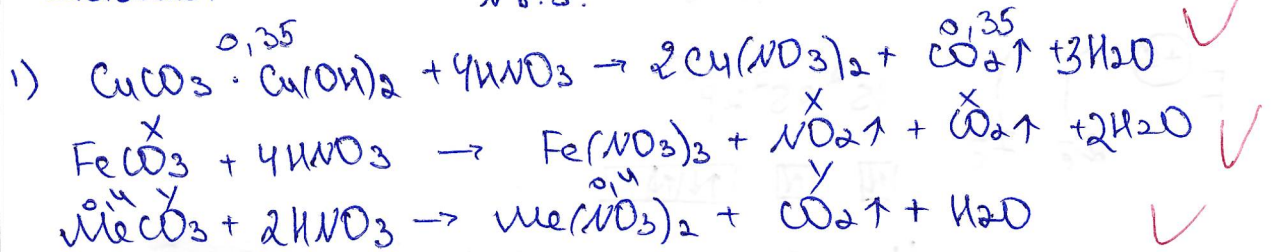 0,35 0,35
1) CuCO3 · Cu(OH)2 + 4HNO3 → 2Cu(NO3)2 + CO2↑ + 3H2O
x x x
FeCO3 + 4HNO3 → Fe(NO3)3 + NO2↑ + CO2↑ + 2H2O
0,4 y 0,4 y
MeCO3 + 2HNO3 → Me(NO3)2 + CO2↑ + H2O